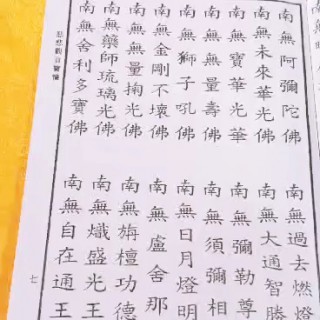 南無阿彌陀佛
南無未來華光佛
南無寶華光佛
南無無量壽佛
南無獅子吼佛
南無金剛不壞佛
南無無量掬光佛
南無藥師琉璃光佛
南無舍利多寶佛
南無過去燃燈
南無大通智勝
南無彌勒尊
南無須彌相
南無日月燈明
南無盧舍那
南無旃檀功德
南無熾盛光王
南無自在通王
慈悲觀音寶懺
七